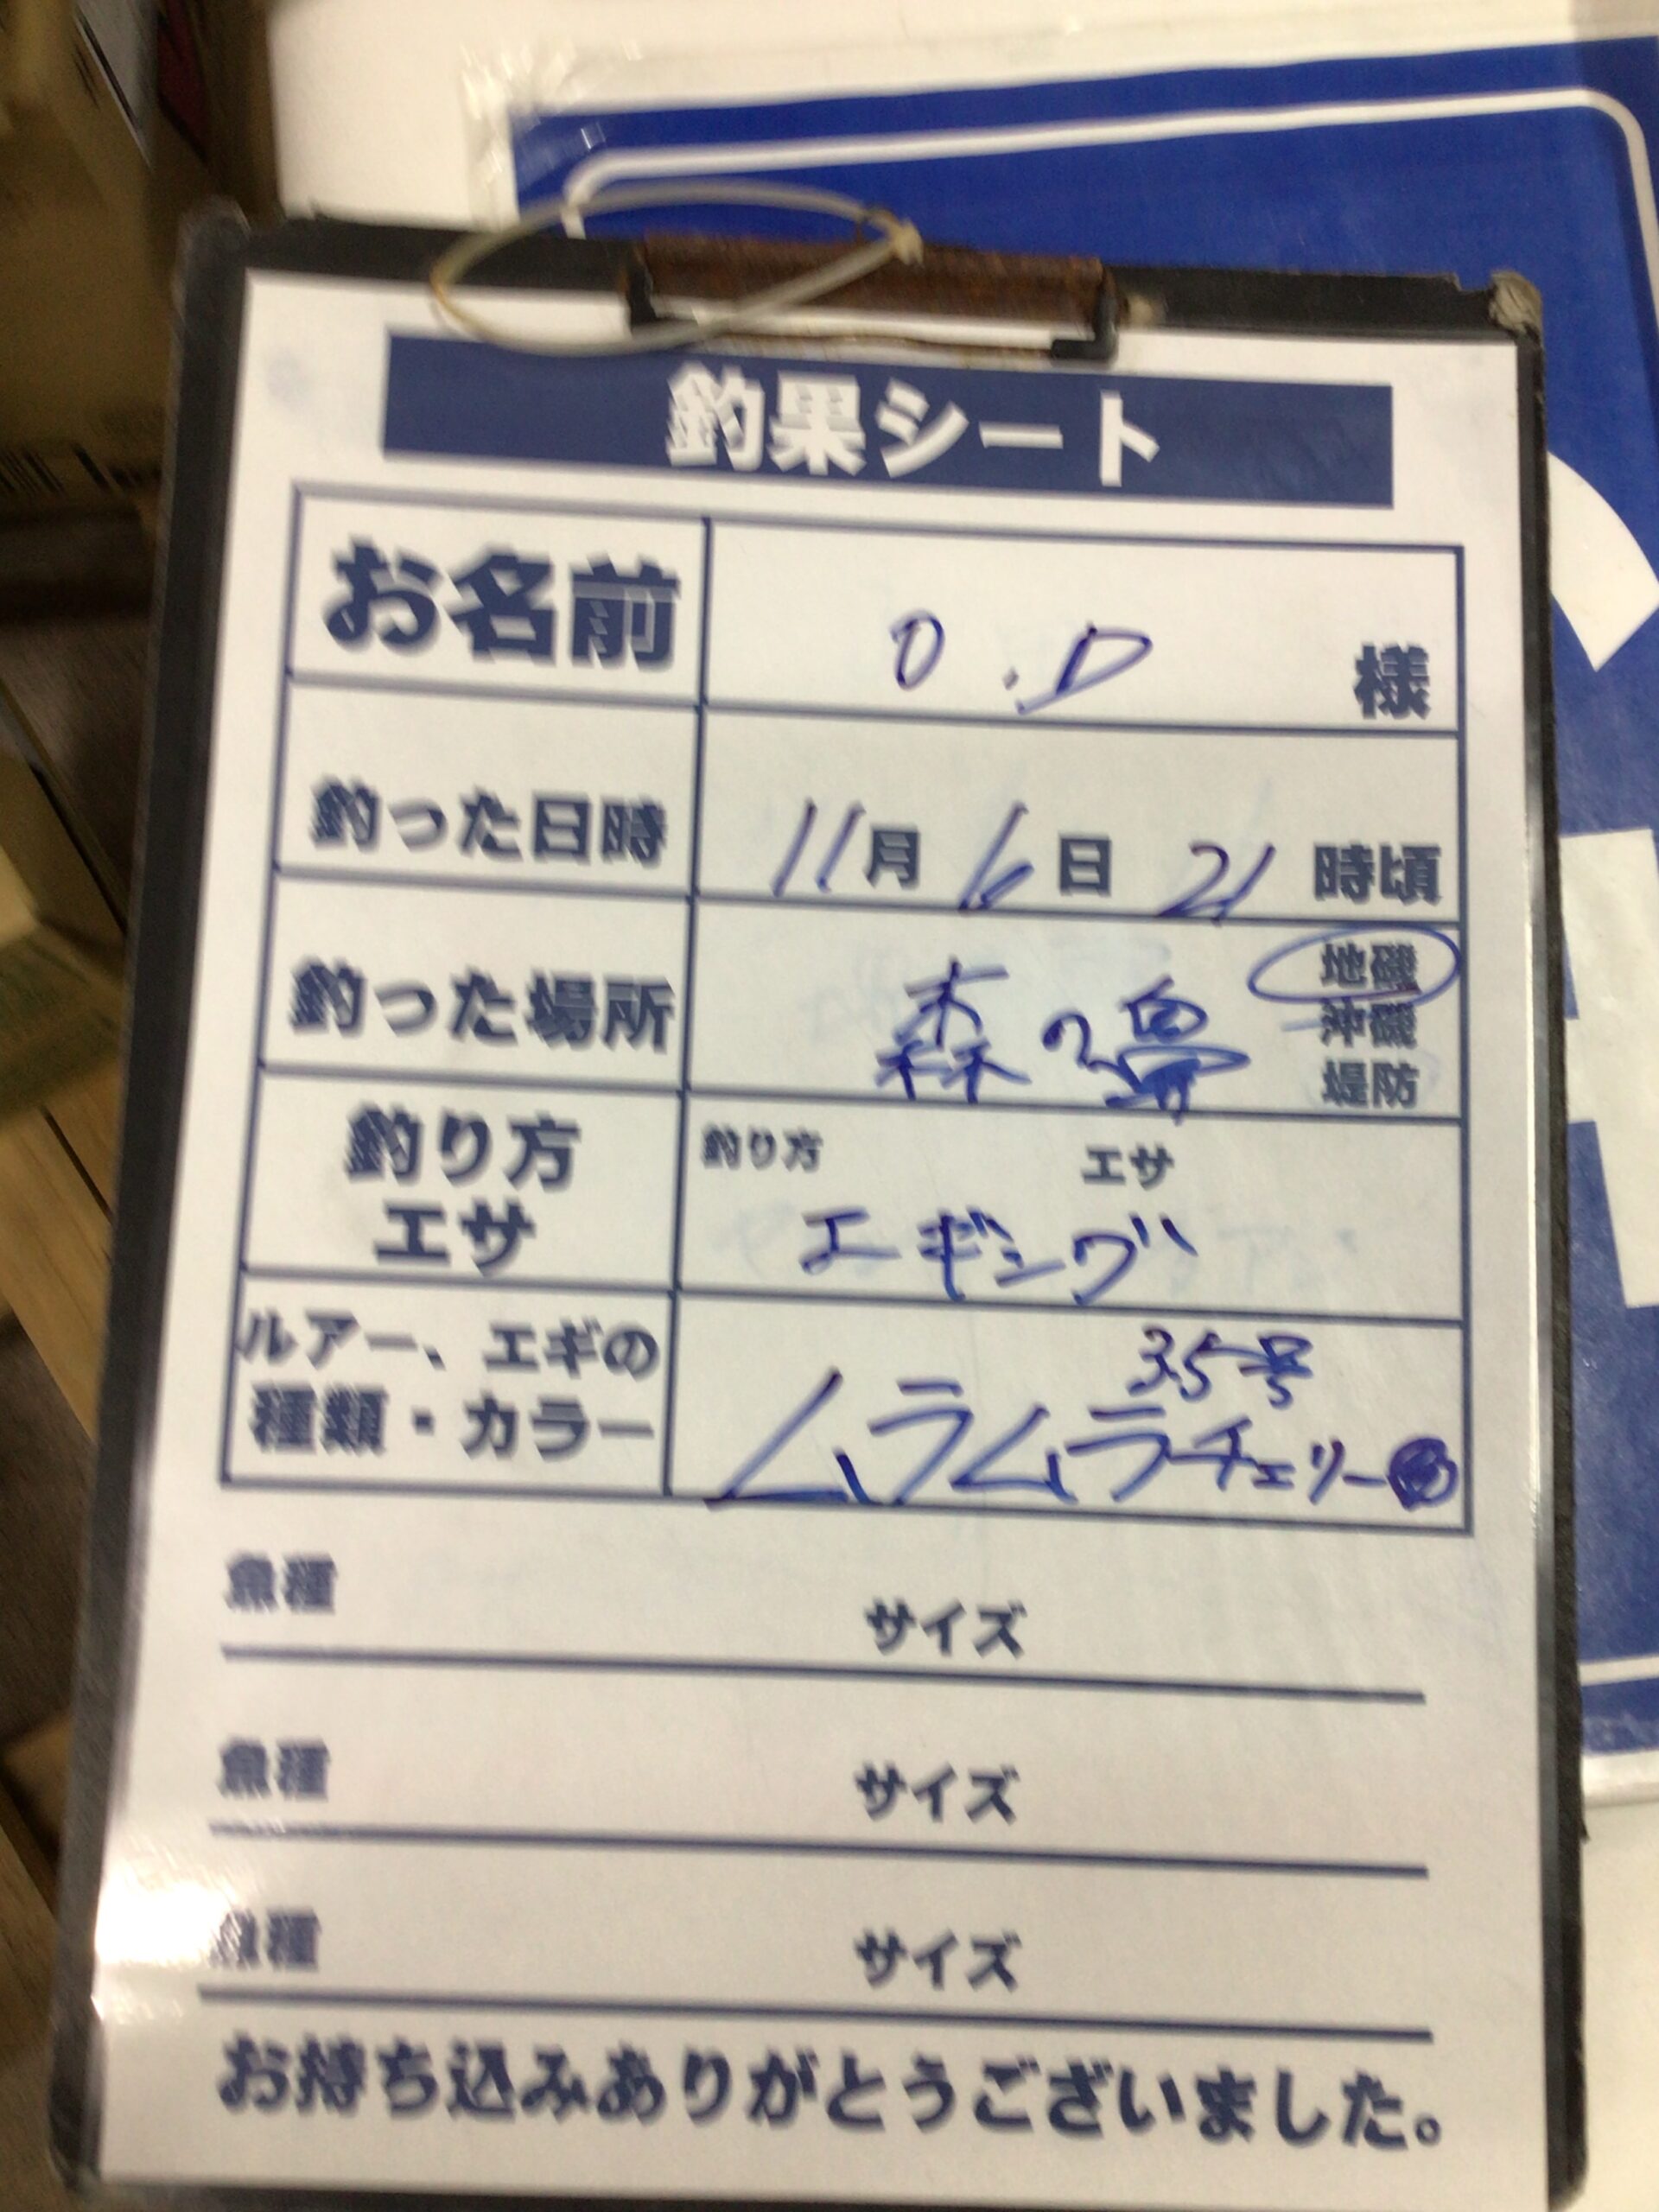 釣果シート
お名前 O.D 様
釣った日時 11月6日 21時頃
釣った場所 森の鼻 地磯
沖磯
堤防
釣り方
エサ
釣り方 エサ
エギング
ルアー、エギの
種類・カラー
3.5号
ムラムラチェリー
魚種 サイズ
魚種 サイズ
魚種 サイズ
お持ち込みありがとうございました。